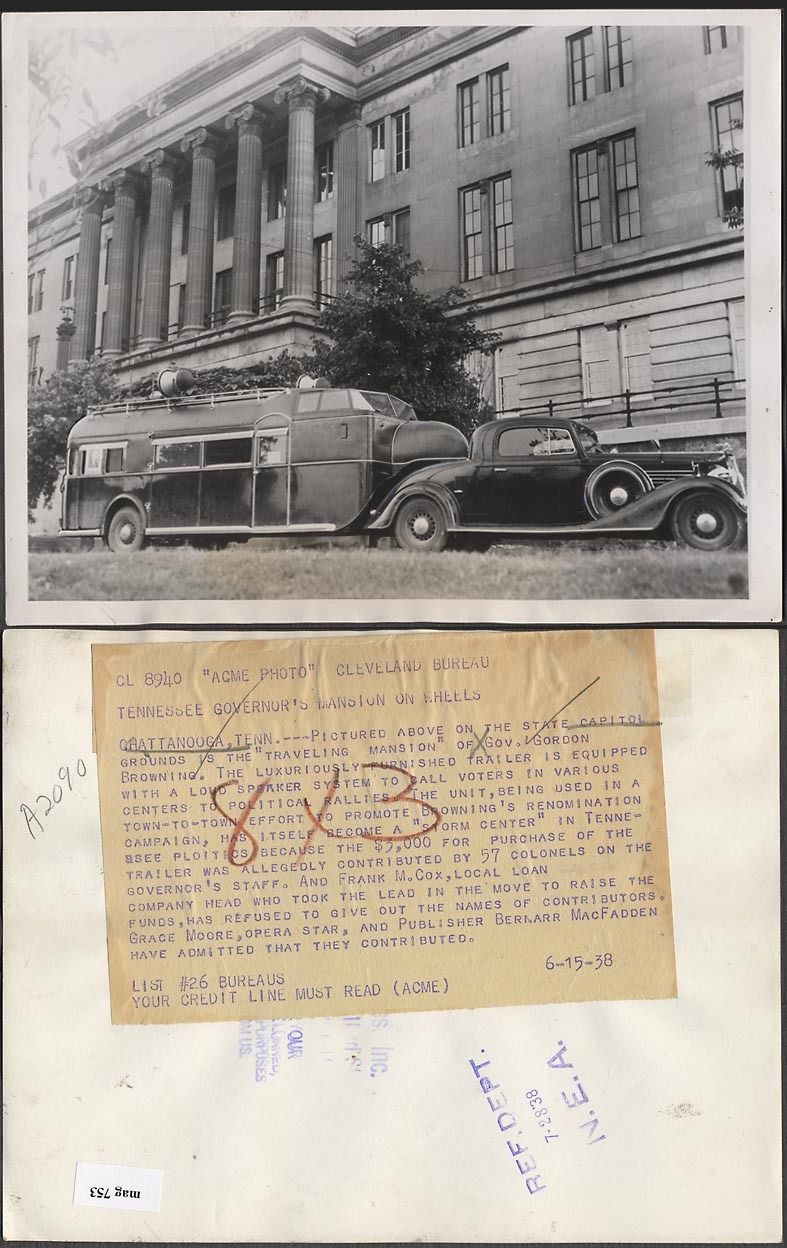 CL 8940 "ACME PHOTO" CLEVELAND BUREAU
TENNESSEE GOVERNOR'S MANSION ON WHEELS
CHATTANOOGA,TENN.---PICTURED ABOVE ON THE STATE CAPITOL
GROUNDS IS THE"TRAVELING MANSION" OF GOV. GORDON
BROWNING. THE LUXURIOUSLY FURNISHED TRAILER IS EQUIPPED
WITH A LOUD SPEAKER SYSTEM TO CALL VOTERS IN VARIOUS
CENTERS TO POLITICAL RALLIES. THE UNIT,BEING USED IN A
TOWN-TO-TOWN EFFORT TO PROMOTE BROWNING'S RENOMINATION
CAMPAIGN, HAS ITSELF BECOME A "STORM CENTER" IN TENNE-
SSEE PLOITICS BECAUSE THE $5,000 FOR PURCHASE OF THE
TRAILER WAS ALLEGEDLY CONTRIBUTED BY 57 COLONELS ON THE
GOVERNOR'S STAFF. AND FRANK M.COX,LOCAL LOAN
COMPANY HEAD WHO TOOK THE LEAD IN THE MOVE TO RAISE THE
FUNDS,HAS REFUSED TO GIVE OUT THE NAMES OF CONTRIBUTORS.
GRACE MOORE,OPERA STAR, AND PUBLISHER BERNARR MACFADDEN
HAVE ADMITTED THAT THEY CONTRIBUTED.
6-15-38
LIST #26 BUREAUS
YOUR CREDIT LINE MUST READ (ACME)
8 X B
A2090
Inc.
YOUR
PURPOSES
US.
REF. DEPT.
7-28'38
N.E.A.
mag 753